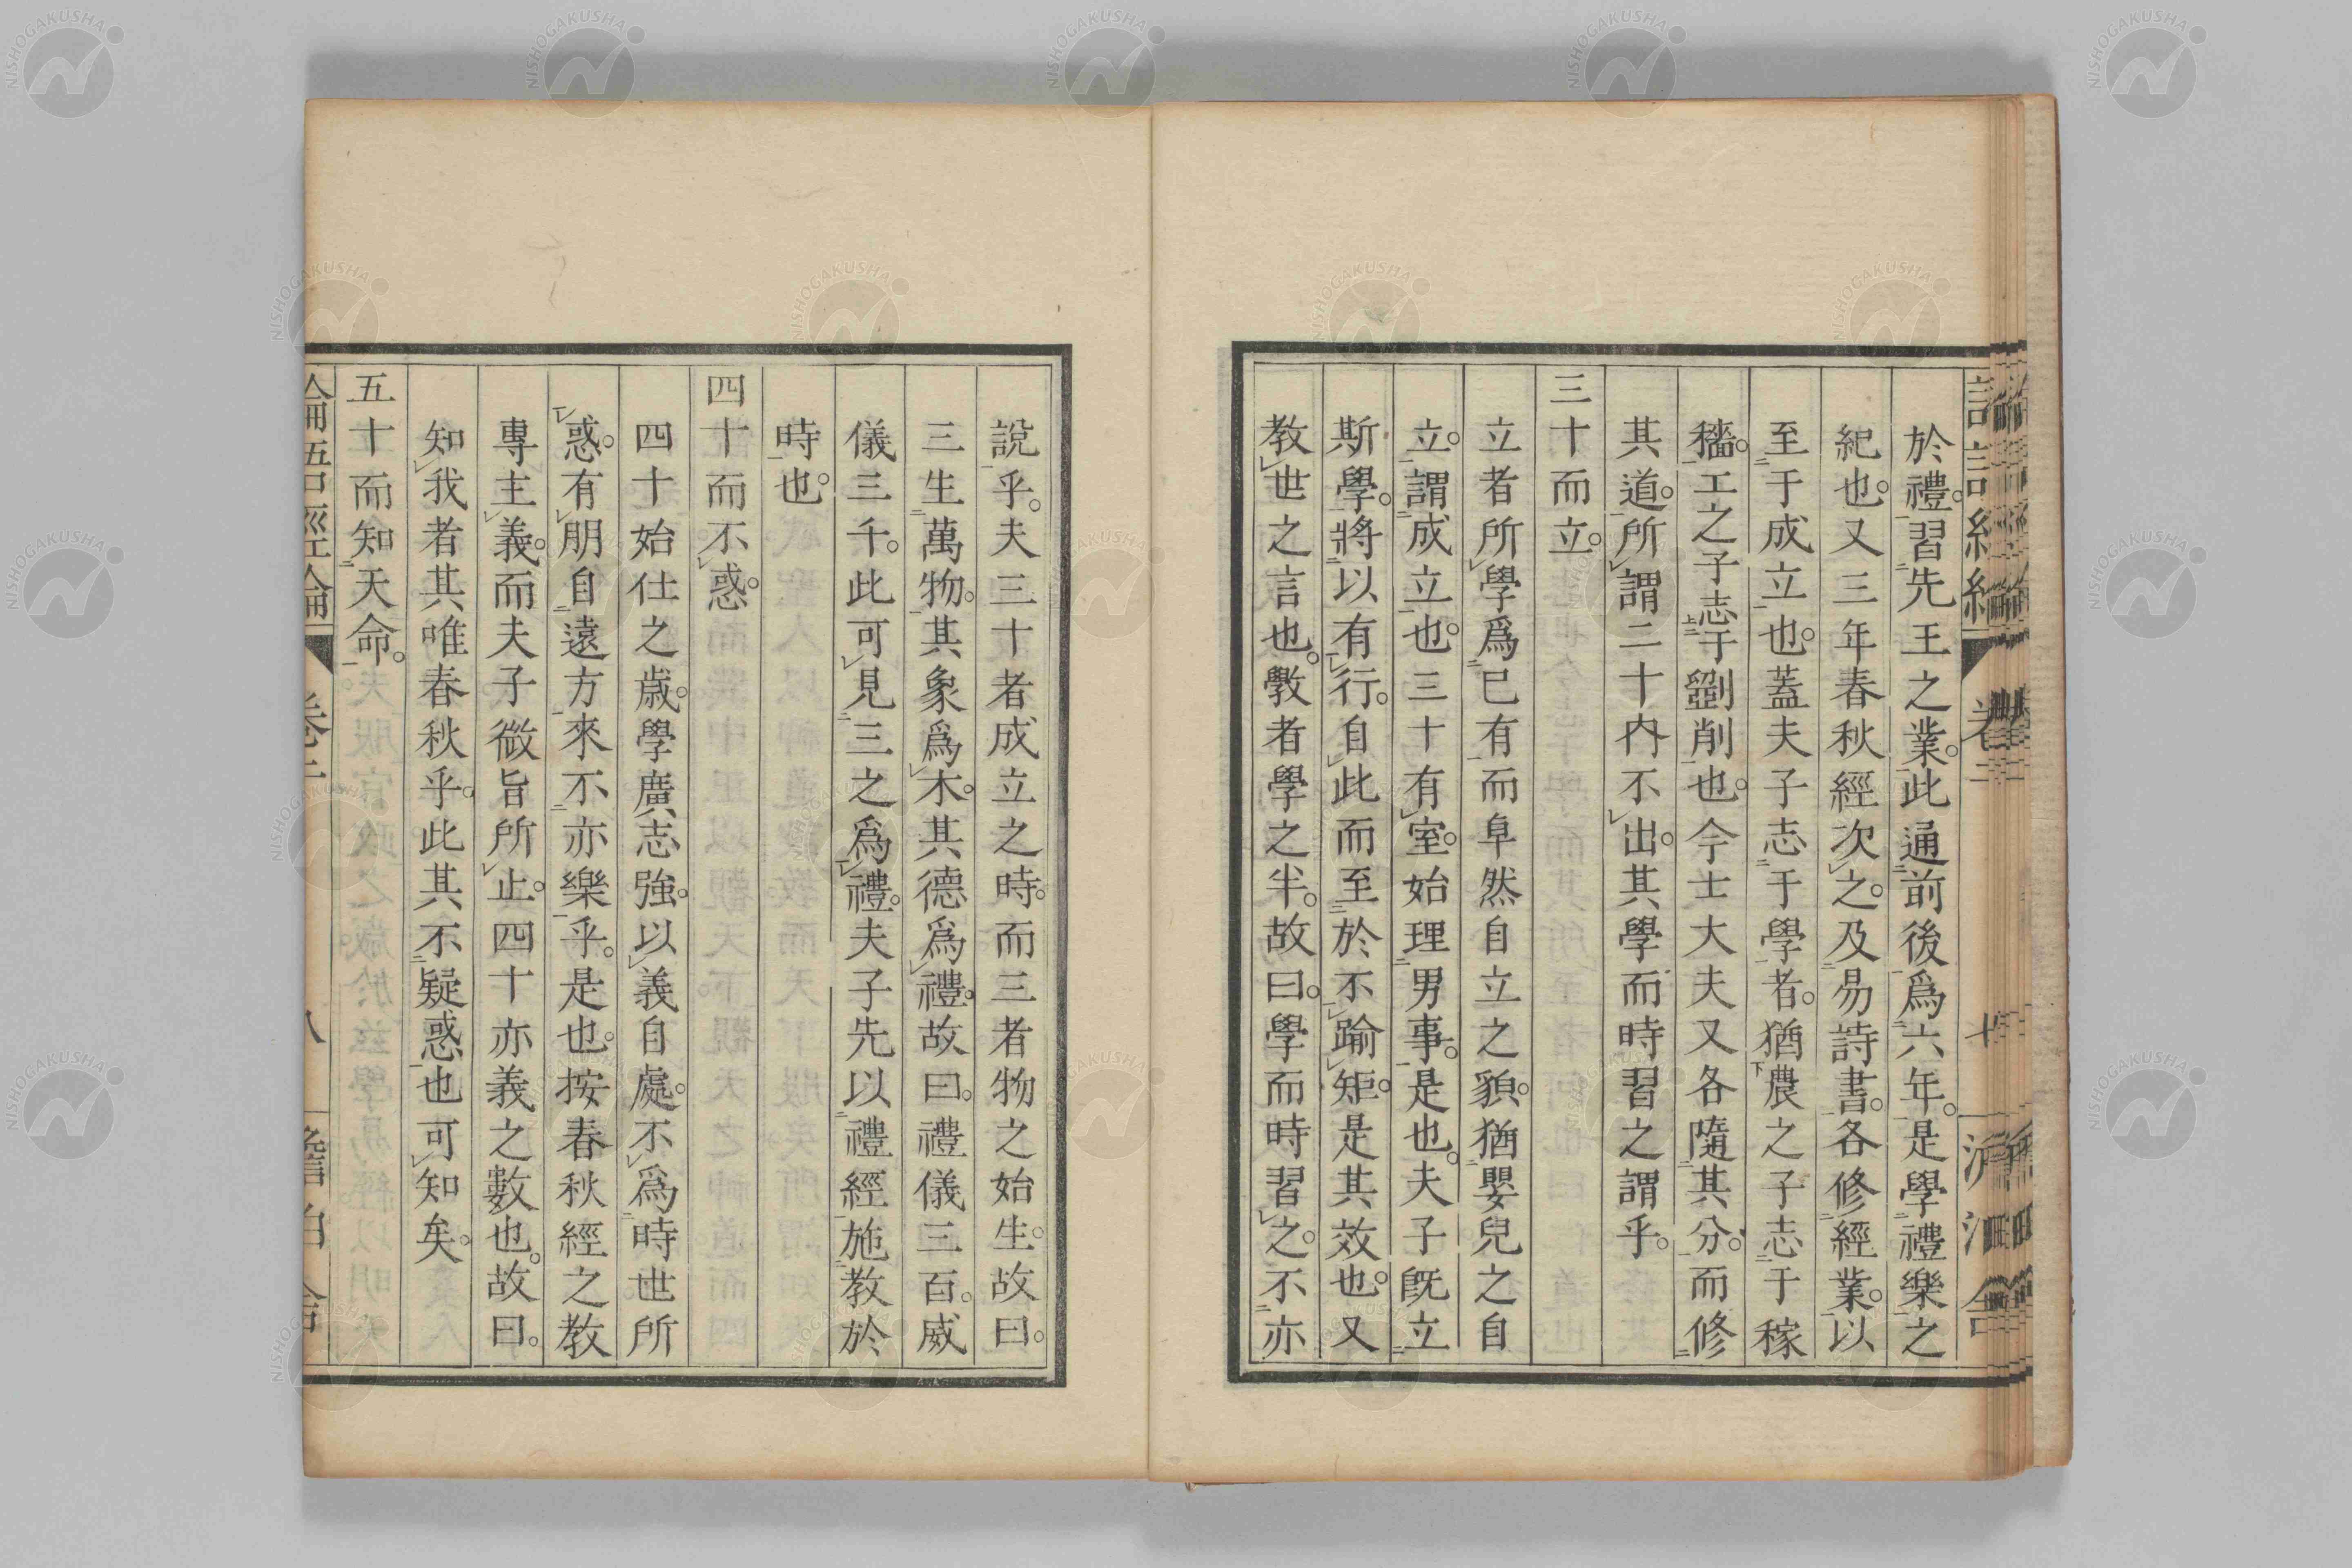 於禮。習先王之業。此通前後爲六年。是學禮樂之
紀也。又三年春秋經次之。及易詩書。各修經業。以
至于成立也。蓋夫子志于學者。猶農之子志于稼
穡。工之子志于劉削也。今士大夫又各隨其分。而修
其道。所謂二十内不出。其學而時習之謂乎。
三十而立。
立者所學爲已有而阜然自立之貌。猶嬰兒之自
立。謂成立也。三十有室。始理男事。是也。夫子旣立
斯學。將以有行。自此而至於不踰矩。是其效也。又
教世之言也。斅者學之半。故曰。學而時習之。不亦
說乎。夫三十者成立之時。而三者物之始生。故曰。
三生萬物。其象爲木。其德爲禮。故曰。禮儀三百。威
儀三千。此可見三之爲禮。夫子先以禮經施教於
時也。
四十而不惑。
四十始仕之歲。學廣志強。以義自處。不爲時世所
惑。有朋自遠方來不亦樂乎。是也。按春秋經之教
專主義。而夫子微旨所止。四十亦義之數也。故曰。
知我者其唯春秋乎。此其不疑惑也可知矣。
五十而知天命。